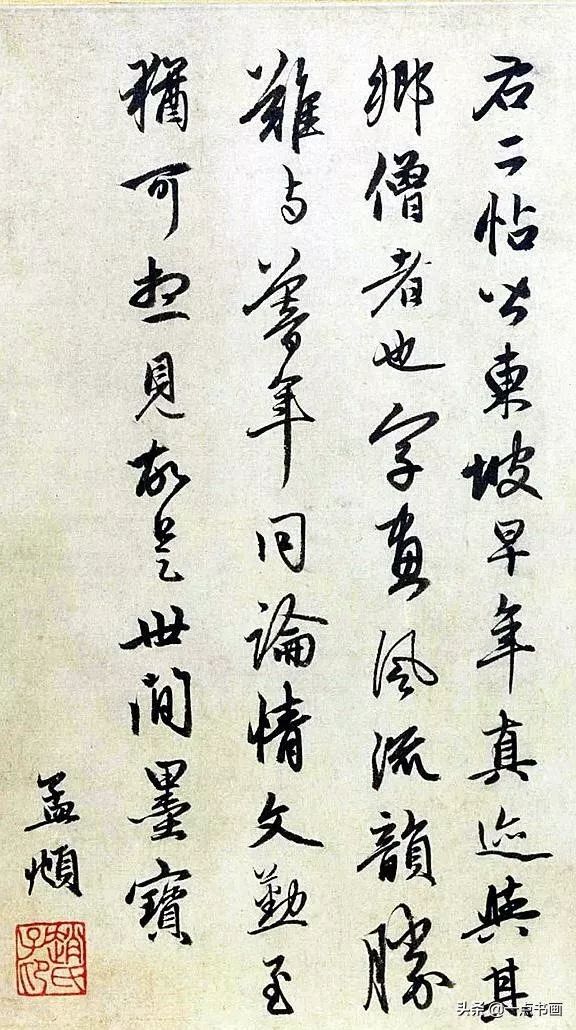 右二帖皆東坡早年真迹與其
鄉僧者也字畫風流韻勝
難与暮年同論情文勤至
猶可想見故是世間墨寶
孟頫
趙氏子印
头条@一点书画